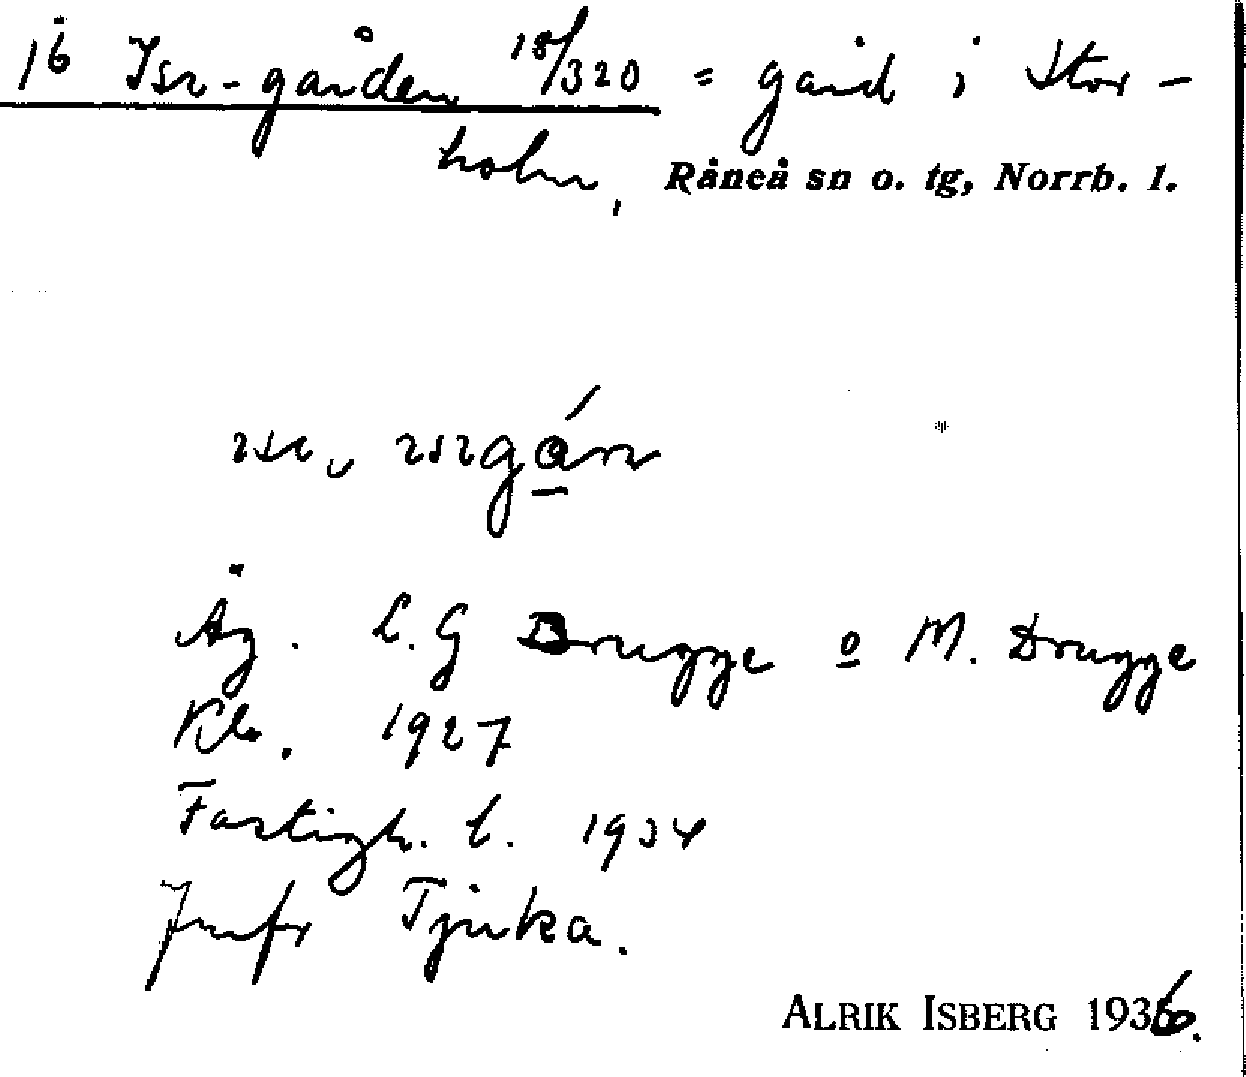 16 Isr-gården 18/320 = gård i Stor-
holm, Råneå sn o. tg, Norrb. l.
Äg. L. G Drugge o M. Drugge
Kl. 1927
Fastigh. l. 1934
Jmfr Tjuka.
ALRIK ISBERG 1936.